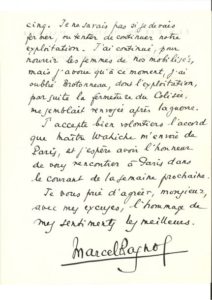 cinq. Je ne savais pas si je devais
fermer, ou tenter de continuer notre
exploitation. J'ai continué, pour
nourrir les femmes de nos mobilisés,
mais j'avoue qu'à ce moment, j'ai
oublié Brotonneau, dont l'exploitation,
par suite la fermeture du Colisée,
me semblait renvoyée après la guerre.
J'accepte bien volontiers l'accord
que maître Wahiche m'envoie de
Paris, et j'espère avoir l'honneur
de vous rencontrer à Paris dans
le courant de la semaine prochaine.
Je vous prie d'agréer, monsieur,
avec mes excuses, l'hommage de
mes sentiments les meilleurs.
Marcel Pagnol